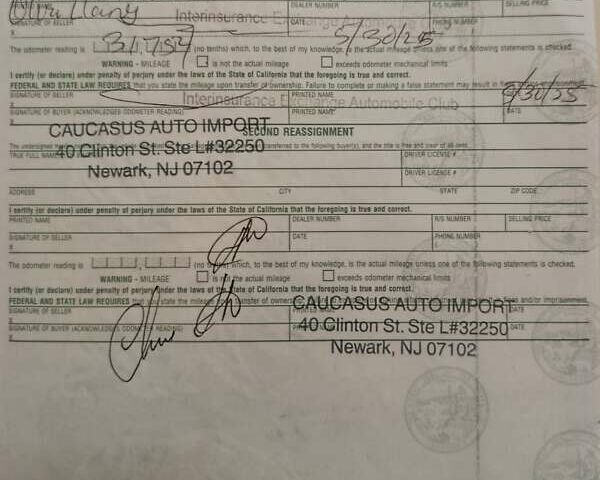 DEALER NUMBER R/S NUMBER SELLING PRICE
SIGNATURE OF SELLER Interinsurance Exchange Automobile Club DATE 5/30/25 PHONE NUMBER
X
The odometer reading is (no tenths) which, to the best of my knowledge, is the actual mileage unless one of the following statements is checked.
WARNING - MILEAGE is not the actual mileage exceeds odometer mechanical limits
I certify (or declare) under penalty of perjury under the laws of the State of California that the foregoing is true and correct.
FEDERAL AND STATE LAW REQUIRES that you state the mileage upon transfer of ownership. Failure to complete or making a false statement may result in
SIGNATURE OF SELLER Interinsurance Exchange Automobile Club PRINTED NAME 5/30/25
X
SIGNATURE OF BUYER (ACKNOWLEDGES ODOMETER READING) PRINTED NAME DATE
X
CAUCASUS AUTO IMPORT
40 Clinton St. Ste L#32250
Newark, NJ 07102
SECOND REASSIGNMENT
transferred to the following buyer(s), and the title is free and clear of all liens.
TRUE FULL NAME DRIVER LICENSE #
DRIVER LICENSE #
ADDRESS CITY STATE ZIP CODE
I certify (or declare) under penalty of perjury under the laws of the State of California that the foregoing is true and correct.
PRINTED NAME DEALER NUMBER R/S NUMBER SELLING PRICE
SIGNATURE OF SELLER DATE PHONE NUMBER
X
The odometer reading is (no tenths) which, to the best of my knowledge, is the actual mileage unless one of the following statements is checked.
WARNING - MILEAGE is not the actual mileage exceeds odometer mechanical limits
I certify (or declare) under penalty of perjury under the laws of the State of California that the foregoing is true and correct.
FEDERAL AND STATE LAW REQUIRES that you state the mileage upon transfer of ownership and/or imprisonment.
SIGNATURE OF SELLER DATE
X
SIGNATURE OF BUYER (ACKNOWLEDGES ODOMETER READING) DATE
X
CAUCASUS AUTO IMPORT
40 Clinton St. Ste L#32250
Newark, NJ 07102